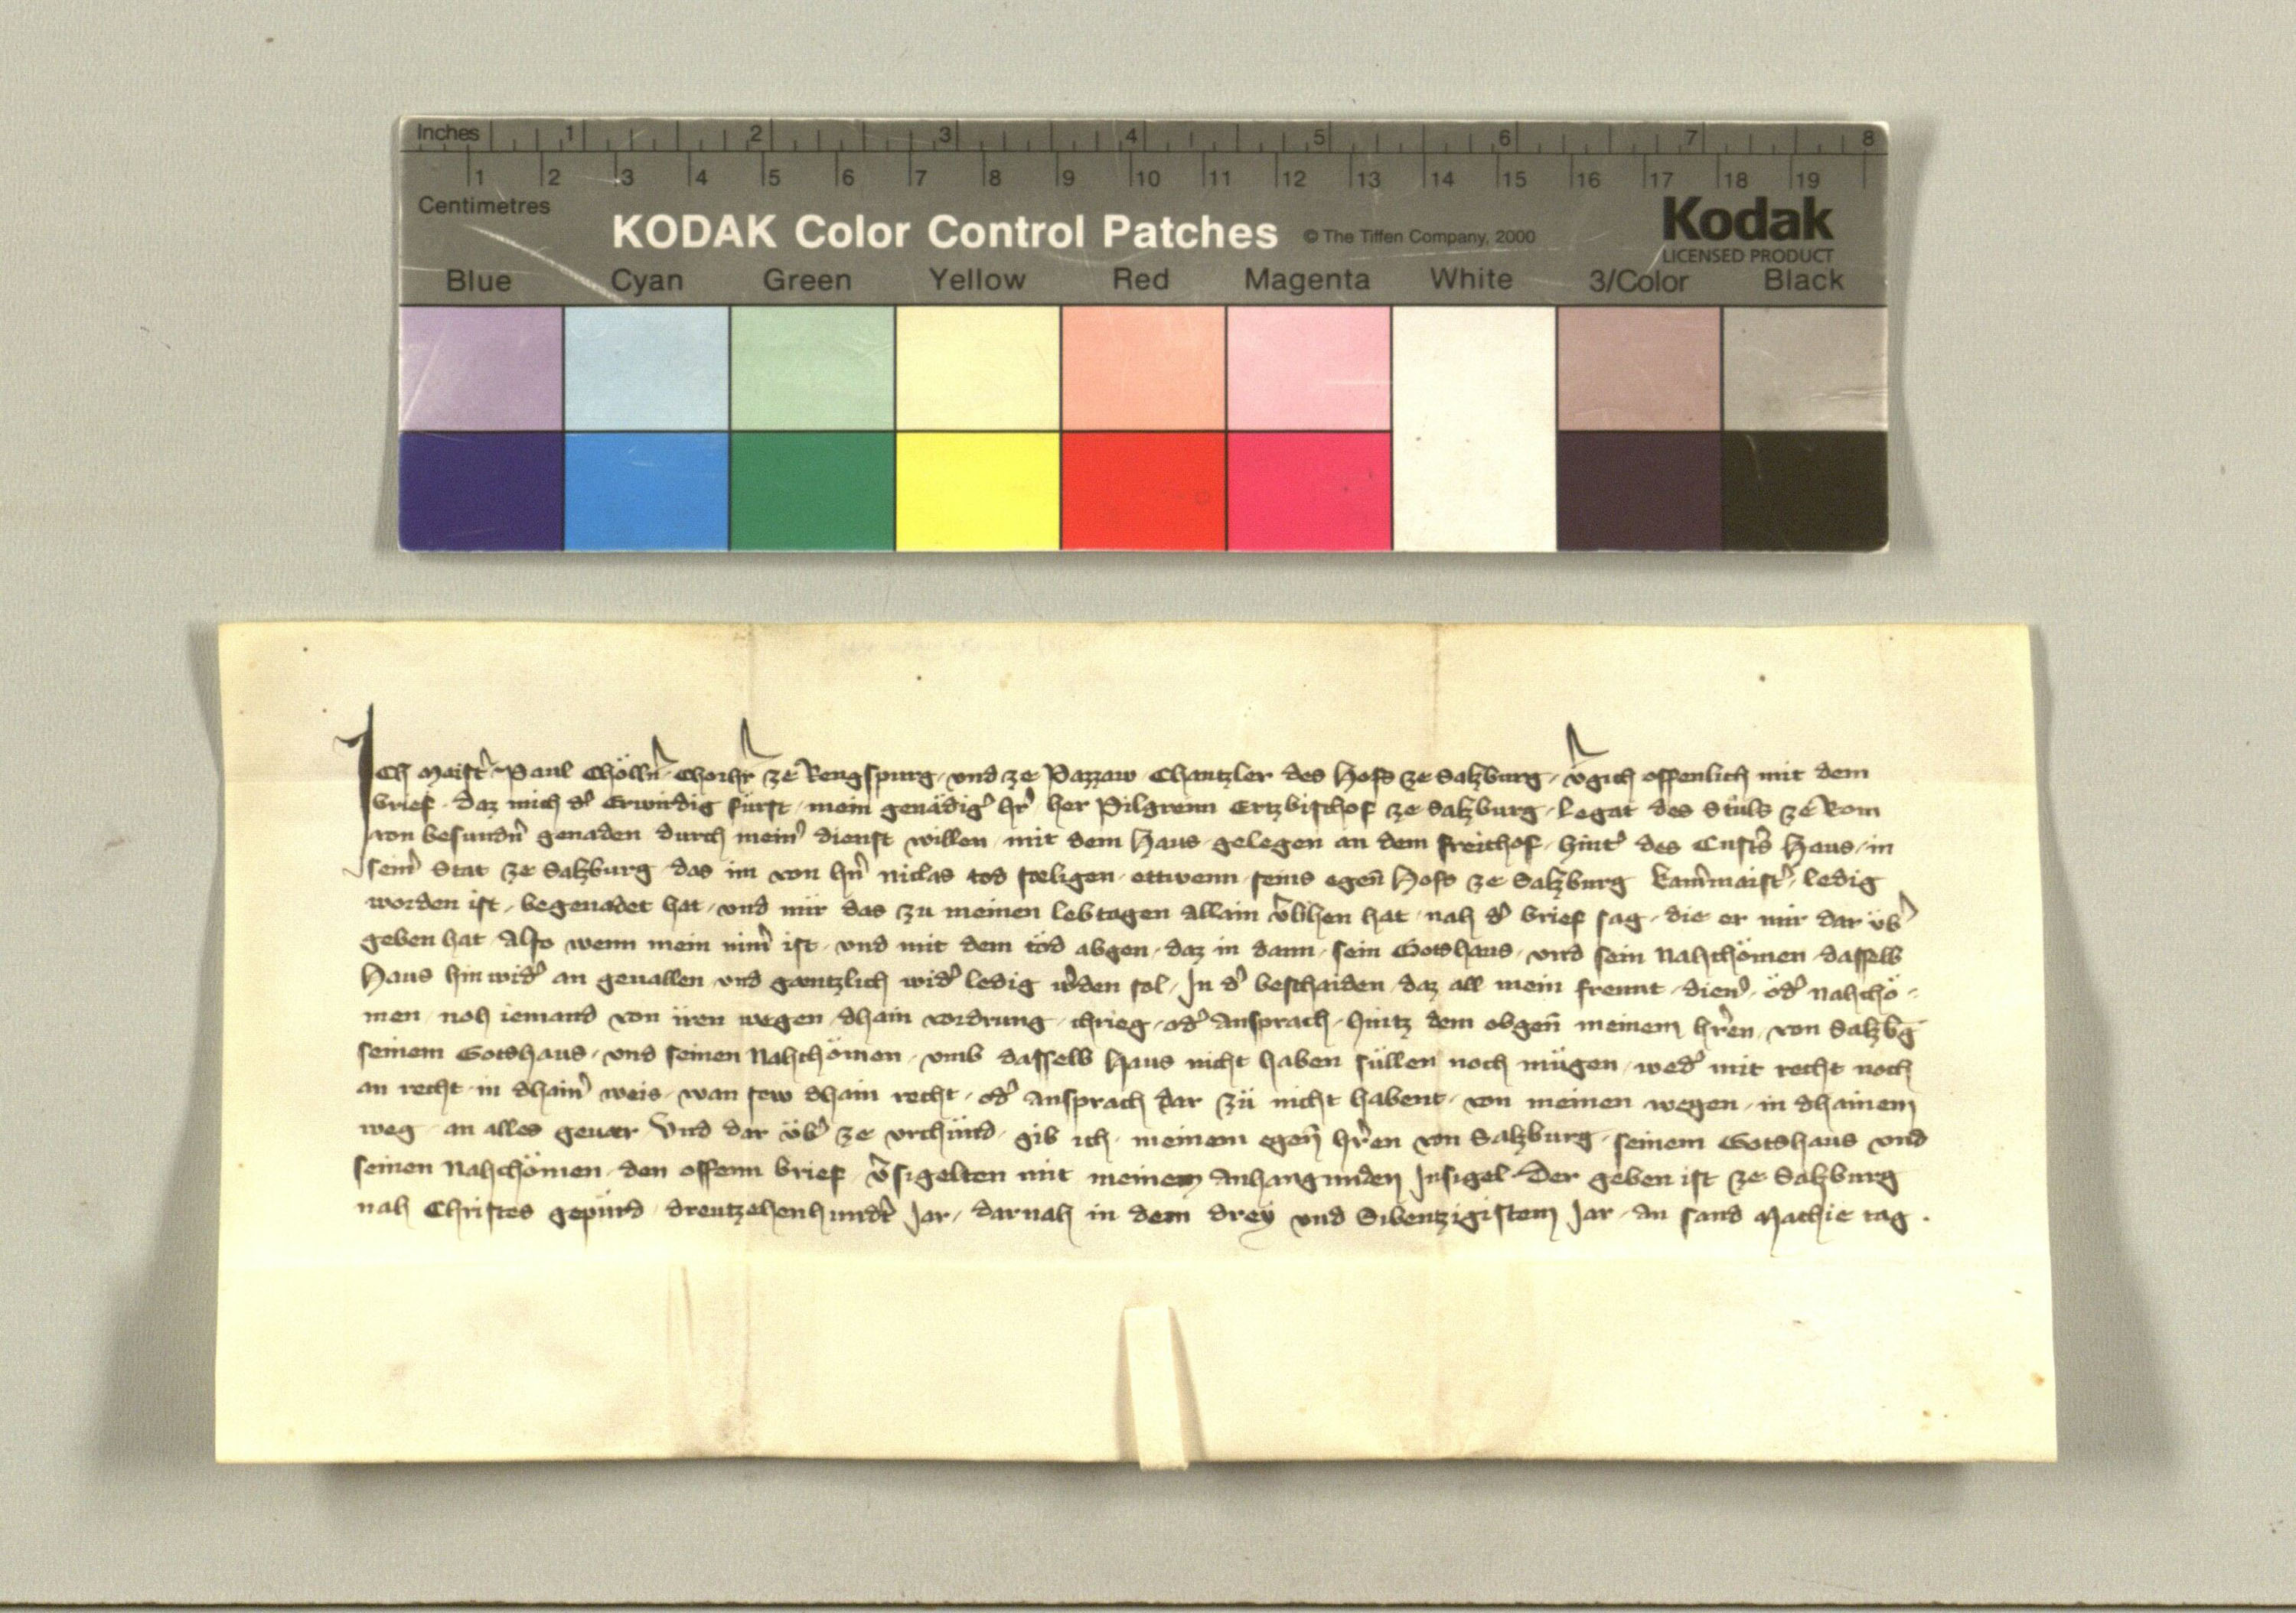 Inches 1 2 3 4 5 6 7 8
1 2 3 4 5 6 7 8 9 10 11 12 13 14 15 16 17 18 19
Centimetres
KODAK Color Control Patches © The Tiffen Company, 2000 Kodak
LICENSED PRODUCT
Blue Cyan Green Yellow Red Magenta White 3/Color Black
Ich Maist̉ Paul Chölln̉ Chorhr̉ ze Rengspurg und ze Pazzaw Chantzler des Hofs ze Salzburg v̉gich offenlich mit dem
brief daz mich d̉ Erwirdig fürst mein genädig̉ hr̉ her Pilgreim Ertzbischof ze Salzburg legat des Stůls ze Rom
von besundn̉ genaden durch mein̉ dienst willen mit dem Haus gelegen an dem freithof hint̉ des Custs̉ Haus in
sein̉ Stat ze Salzburg das im von hn̉ niclas tod sæligen ettwenn seins egen̄ Hofs ze Salzburg kam̄maist̉ ledig
worden ist begenadet hat und mir das zu meinen lebtagen allain v̉lihen hat nah d̉ brief sag die er mir dar üb̉
geben hat Also wenn mein nim̄ ist und mit dem töd abgen daz in dann sein Gotshaus und sein Nahchömen dasselb
Haus hin wid̉ an geuallen und gæntzlich wid̉ ledig w̉den sol In d̉ beschaiden daz all mein freunt dien̉ öd̉ nahchö-
men noh iemand von iren wegen dhain vordrung chrieg od̉ Ansprach hintz dem obgen̄ meinem hr̉en von Salzbḡ
seinem Gotshaus und seinen Nahchömen umb dasselb Haus nicht haben süllen noch mügen wed̉ mit recht noch
an recht in dhain̉ weis wan sew dhain recht od̉ Ansprach dar zü nicht habent von meinen wegen in dhainem
weg an alles geuær Und dar üb̉ ze urchünd gib ich meinem egen̄ hr̉en von Salzburg seinem Gotshaus und
seinen Nahchömen den offenn brief v̉sigelten mit meinem Anhangunden Insigel Der geben ist ze Salzburg
nah Christes gepürd dreutzehenhundt̉ Jar darnah in dem dreÿ und Sibentzigistem Jar an sand Mathie tag .